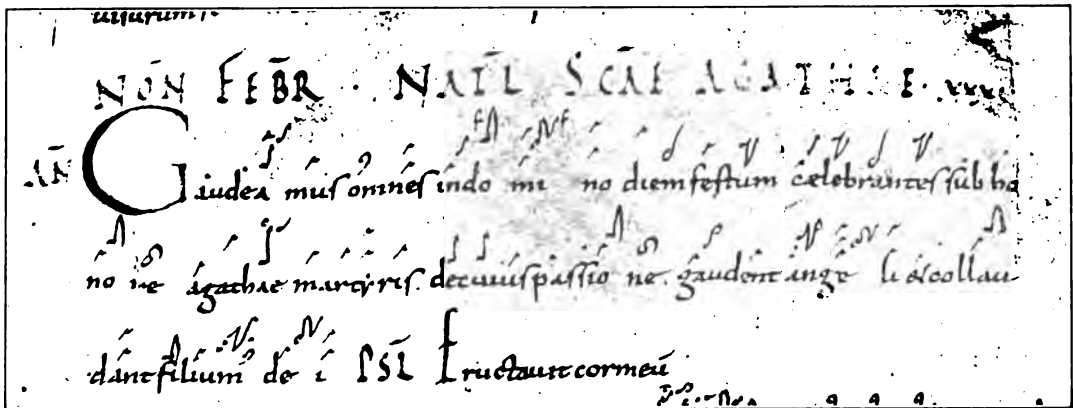 uisurum
NON FEBR · NATL SCAE AGATHAE ·
AN Gaudea mus omnes indo mi no diem festum cęlebrantes sub ho
no re agathae martyris. decuius passio ne. gaudent ange li & collau
dant filium de i PSL Eructauit cor meū